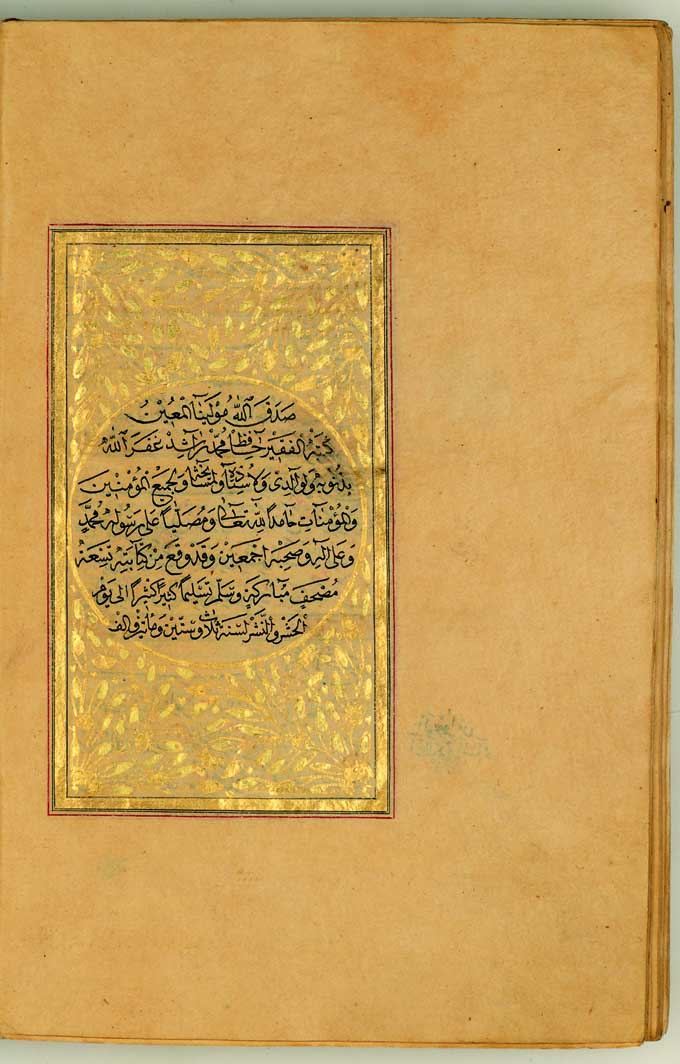 صدق الله مولينا المعين
كتبه الفقير حافظ محمد راشد غفر الله
ذنوبه ولوالدي ولاستاده ولجميع المؤمنين
والمؤمنات حامدا لله تعالى ومصليا على رسوله محمد
وعلى اله وصحبه اجمعين وقد وقع من كتابته تسعة
مصحف مباركة وسلم تسليما كثيرا كثيرا الى يوم
الحشر والنشر لسنة ثلاث وستين ومأتين والف